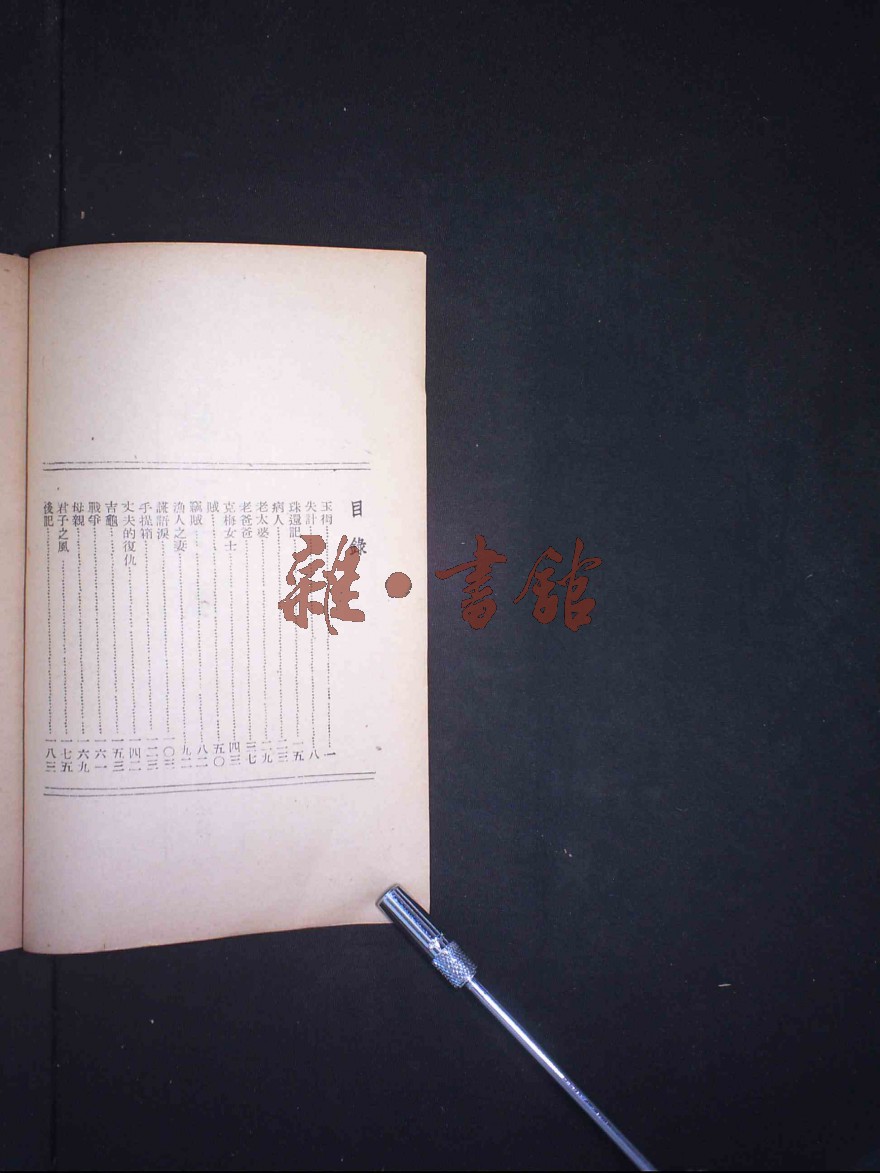 目錄
玉梅……一
失計……八
珠還記……一五
病人……二三
老太婆……二九
老爸爸……三七
克梅女士……四三
賊……五〇
竊賊……八二
漁人之妻……九二
謊語淚……一〇三
手提箱……一二三
丈夫的復仇……一四二
吉龜……一五三
戰爭……一六一
母親……一六九
君子之風……一七五
後記……一八三
雜·書館